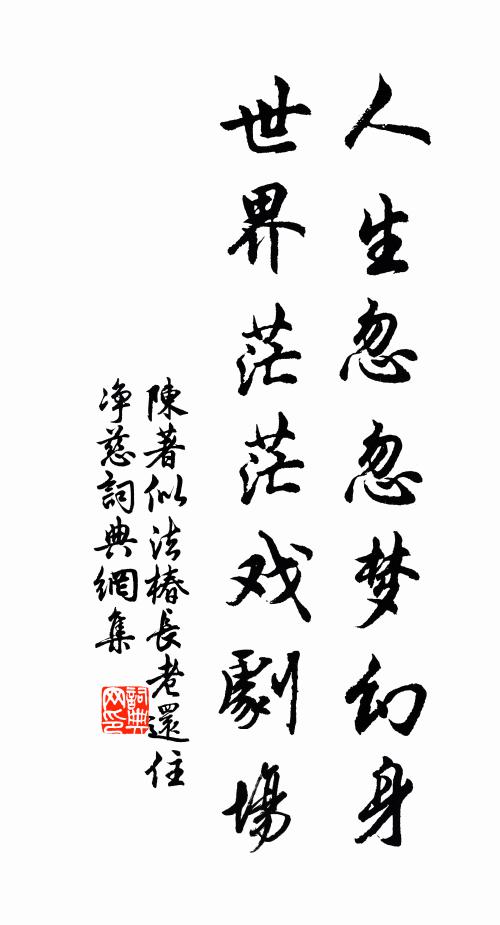 人生忽忽梦幻身
世界茫茫戏劇場
陳著似法椿長老還住
净慈詞典網集
詞典网印